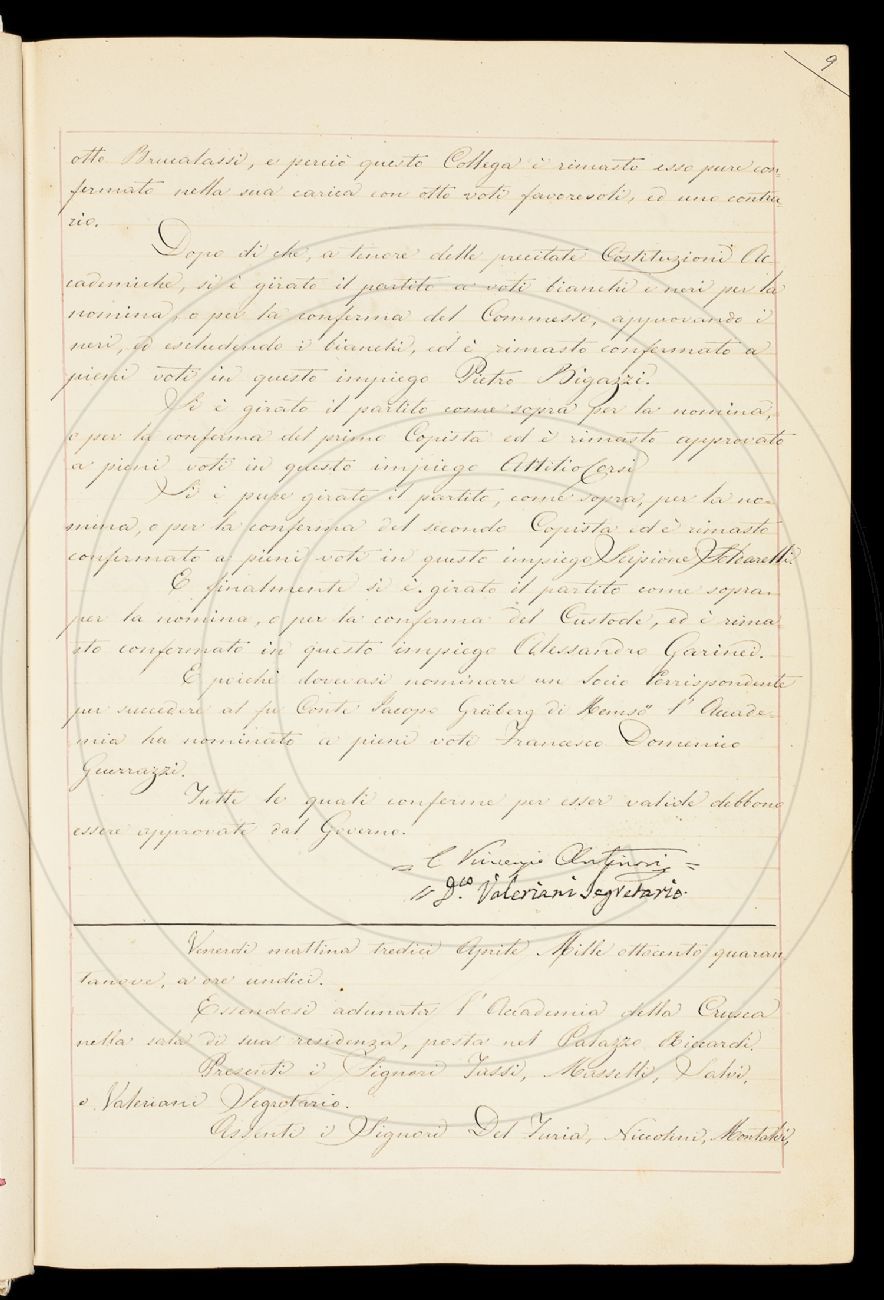 9
otto Brucalassi, e perciò questo Collega è rimasto esso pure con-
fermato nella sua carica con otto voti favorevoli, ed uno contra
rio.
Dopo di che, a tenore delle precitate Costituzioni Ac
cademiche, si è girato il partito a voti bianchi e neri per la
nomina, o per la conferma del Commesso, approvando i
neri, ed escludendo i bianchi, ed è rimasto confermato a
pieni voti in questo impiego Pietro Bigazzi.
Si è girato il partito come sopra per la nomina,
o per la conferma del primo Copista ed è rimasto approvato
a pieni voti in questo impiego Attilio Corsi
Si è pure girato il partito, come sopra, per la no-
mina, o per la conferma del secondo Copista ed è rimasto
confermato a pieni voti in questo impiego Scipione
E finalmente si è girato il partito come sopra
per la nomina, o per la conferma del Custode, ed è rima
sto confermato in questo impiego Alessandro Garinei.
E poichè dovevasi nominare un Socio Corrispondente
per succedere al fu Conte Jacopo Gräberg di Hemsö l'Accade-
mia ha nominato a pieni voti Francesco Domenico
Guerrazzi.
Tutte le quali conferme per esser valide debbono
essere approvate dal Governo.
Vincenzio Antinori
D.co Valeriani Segretario.
Venerdì mattina tredici Aprile Mille ottocento quaran
tanove, a ore undici.
Essendosi adunata l'Accademia della Crusca
nella sala di sua residenza, posta nel Palazzo Riccardi.
Presenti i Signori Tassi, Masselli, Salvi,
e Valeriani Segretario.
Assenti i Signori Del Furia, Niccolini, Montalvi,